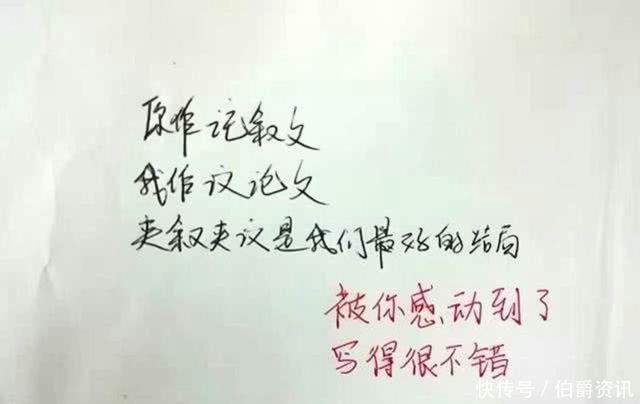 你作记叙文
我作议论文
夹叙夹议是我们最好的结局
被你感动到了
写得很不错
快传号／伯爵资讯